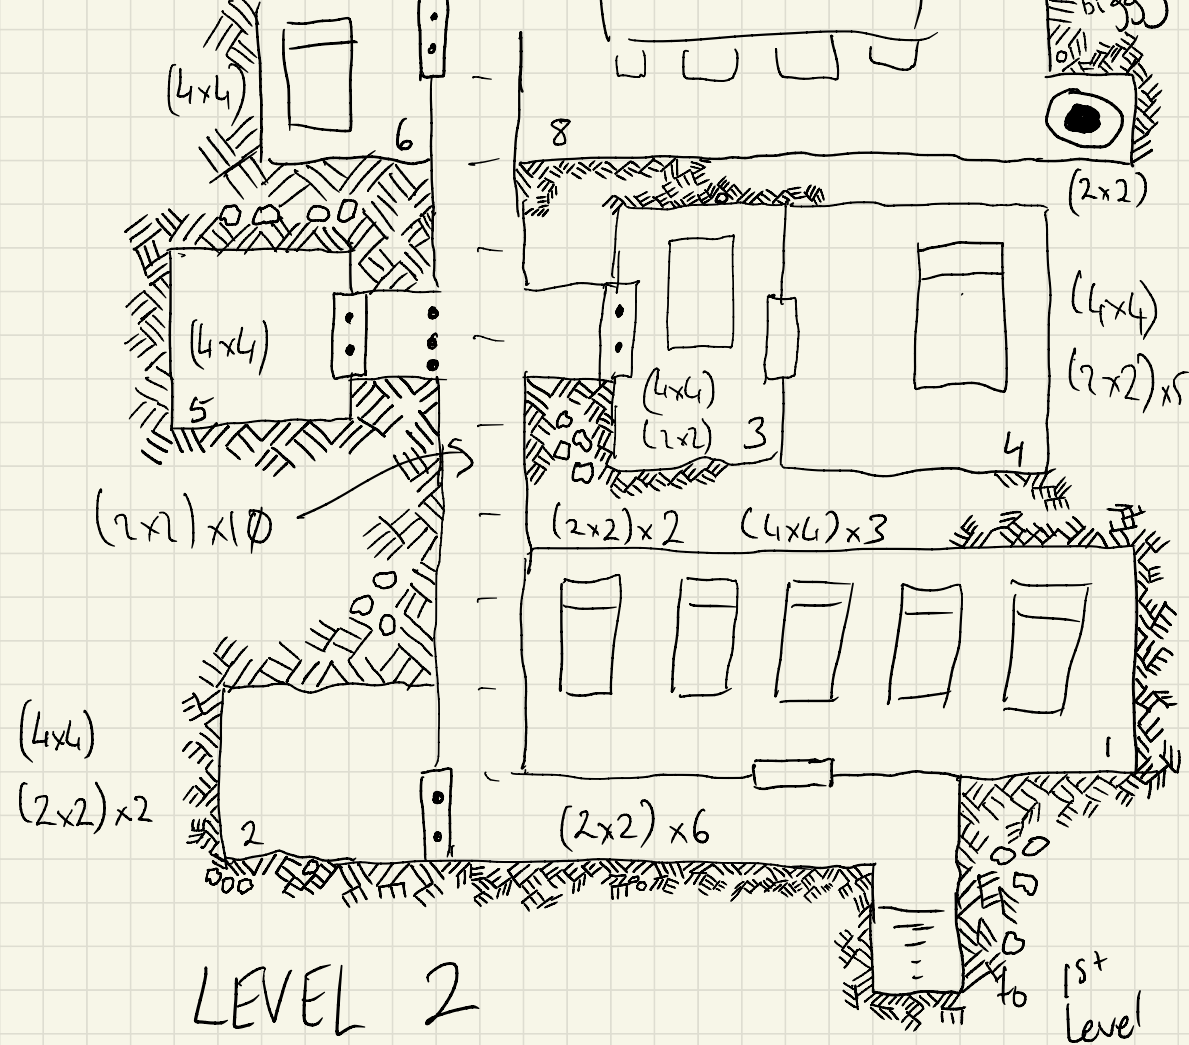 bigg
(4x4)
6
8
(2x2)
(4x4)
5
(4x4)
(2x2)
3
4
(4x4)
(2x2)x5
(2x2)x10
(2x2)x2
(4x4)x3
1
(4x4)
(2x2)x2
2
(2x2)x6
LEVEL 2
to 1st
level